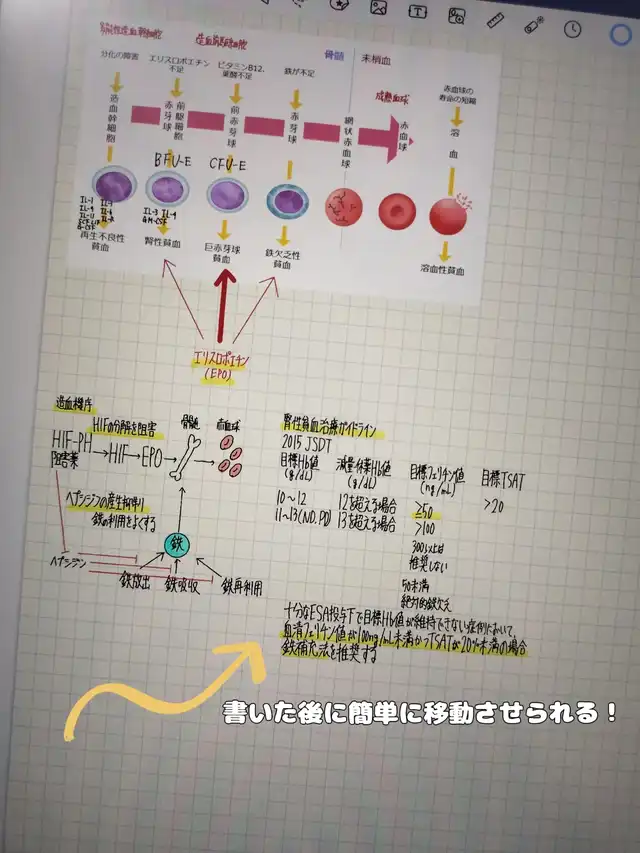 造血前駆細胞
分化の障害
エリスロポエチン
不足
ビタミンB12.
葉酸不足
鉄が不足
骨髄
末梢血
成熟血球
赤血球の
寿命の短縮
造血幹細胞
前駆細胞
赤芽球
前赤芽球
赤芽球
網状赤血球
赤血球
溶血
BFU-E
CFU-E
IL-1
IL-3 IL-4
GM-CSF
再生不良性
貧血
腎性貧血
巨赤芽球
貧血
鉄欠乏性
貧血
溶血性貧血
エリスロポエチン
(EPO)
造血機序
HIFの分解を阻害
骨髄
赤血球
HIF-PH
阻害薬
HIF
EPO
ヘプシジンの産生抑制
鉄の利用をよくする
鉄
ヘプシジン
鉄放出
鉄吸収
鉄再利用
腎性貧血治療ガイドライン
2015 JSDT
目標Hb値
(g/dL)
減量・休薬Hb値
(g/dL)
目標フェリチン値
(ng/mL)
目標TSAT
10〜12
12を超える場合
≧50
>20
11〜13(ND.PD)
13を超える場合
>100
300以上は
推奨しない
50未満
絶対的鉄欠乏
十分なESA投与下で目標Hb値が維持できない症例において、
血清フェリチン値が100mg/mL未満かつTSATが20%未満の場合
鉄補充療法を推奨する
書いた後に簡単に移動させられる！